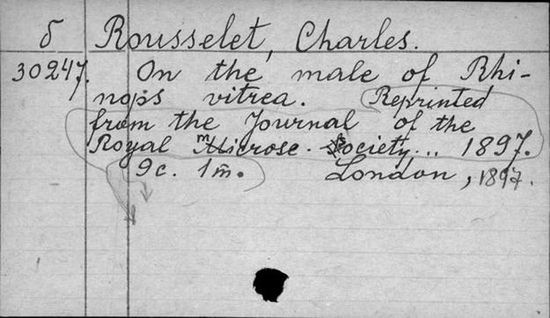 б Rousselet, Charles.
30247. On the male of Rhi-
nops vitrea. Reprinted
from the Journal of the
Royal Microsc. Society... 1897.
9c. 1m. London, 1897.